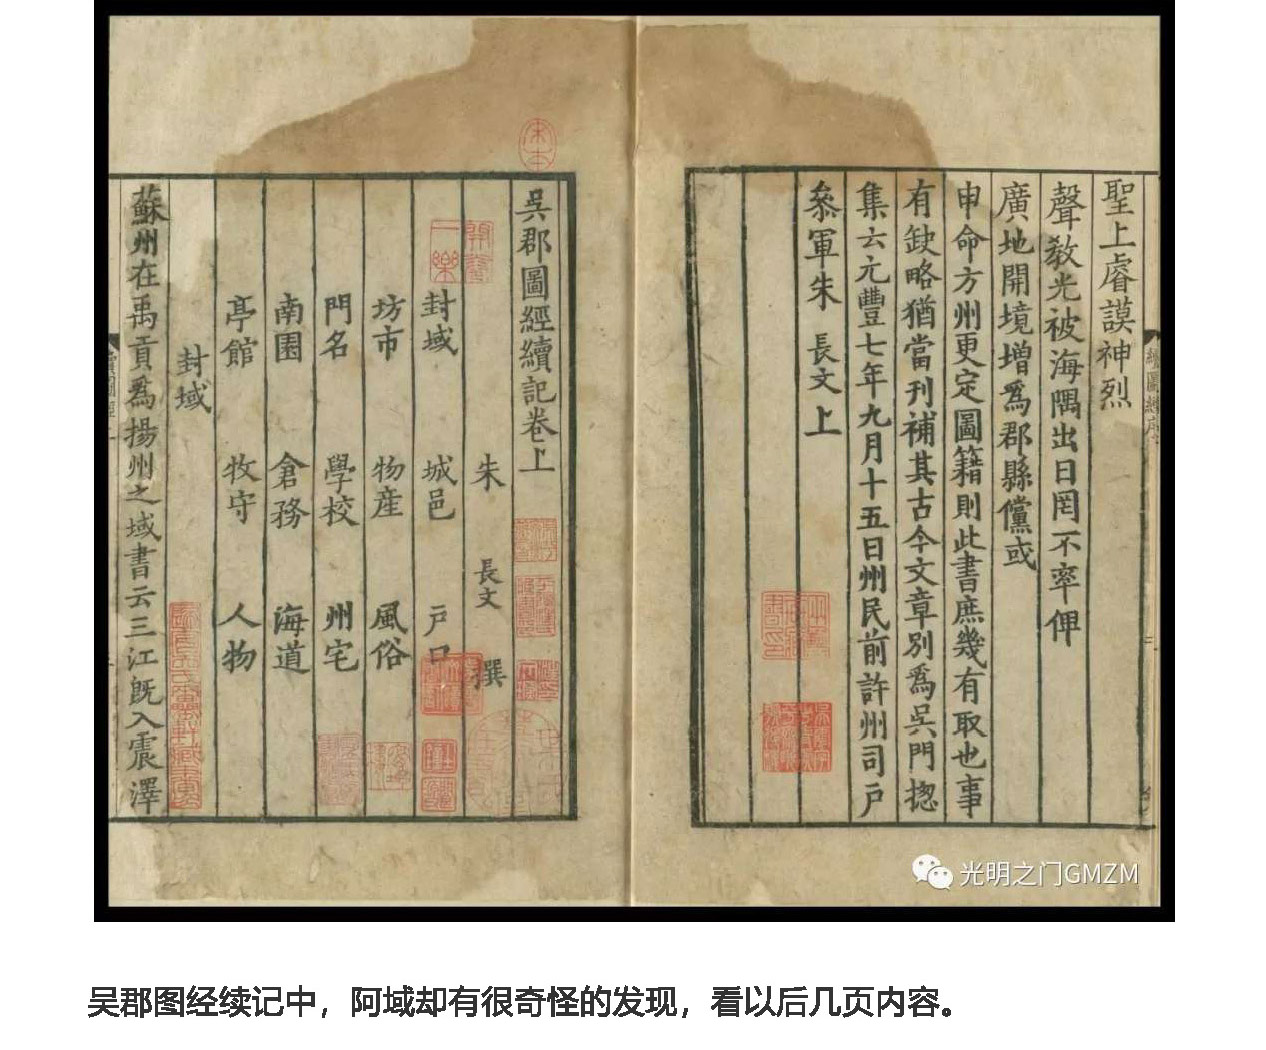 聖上睿謨神烈
聲敎光被海隅出日罔不率俾
廣地開境增爲郡縣儻或
申命方州更定圖籍則此書庶幾有取也事
有缺略猶當刊補其古今文章別爲吳門揔
集云元豐七年九月十五日州民前許州司戶
叅軍朱長文上
吳郡圖經續記卷上
朱長文撰
封域 城邑 戶口
坊市 物産 風俗
門名 學校 州宅
南園 倉務 海道
亭館 牧守 人物
封域
蘇州在禹貢爲揚州之域書云三江旣入震澤
光明之门GMZM
吴郡图经续记中，阿域却有很奇怪的发现，看以后几页内容。